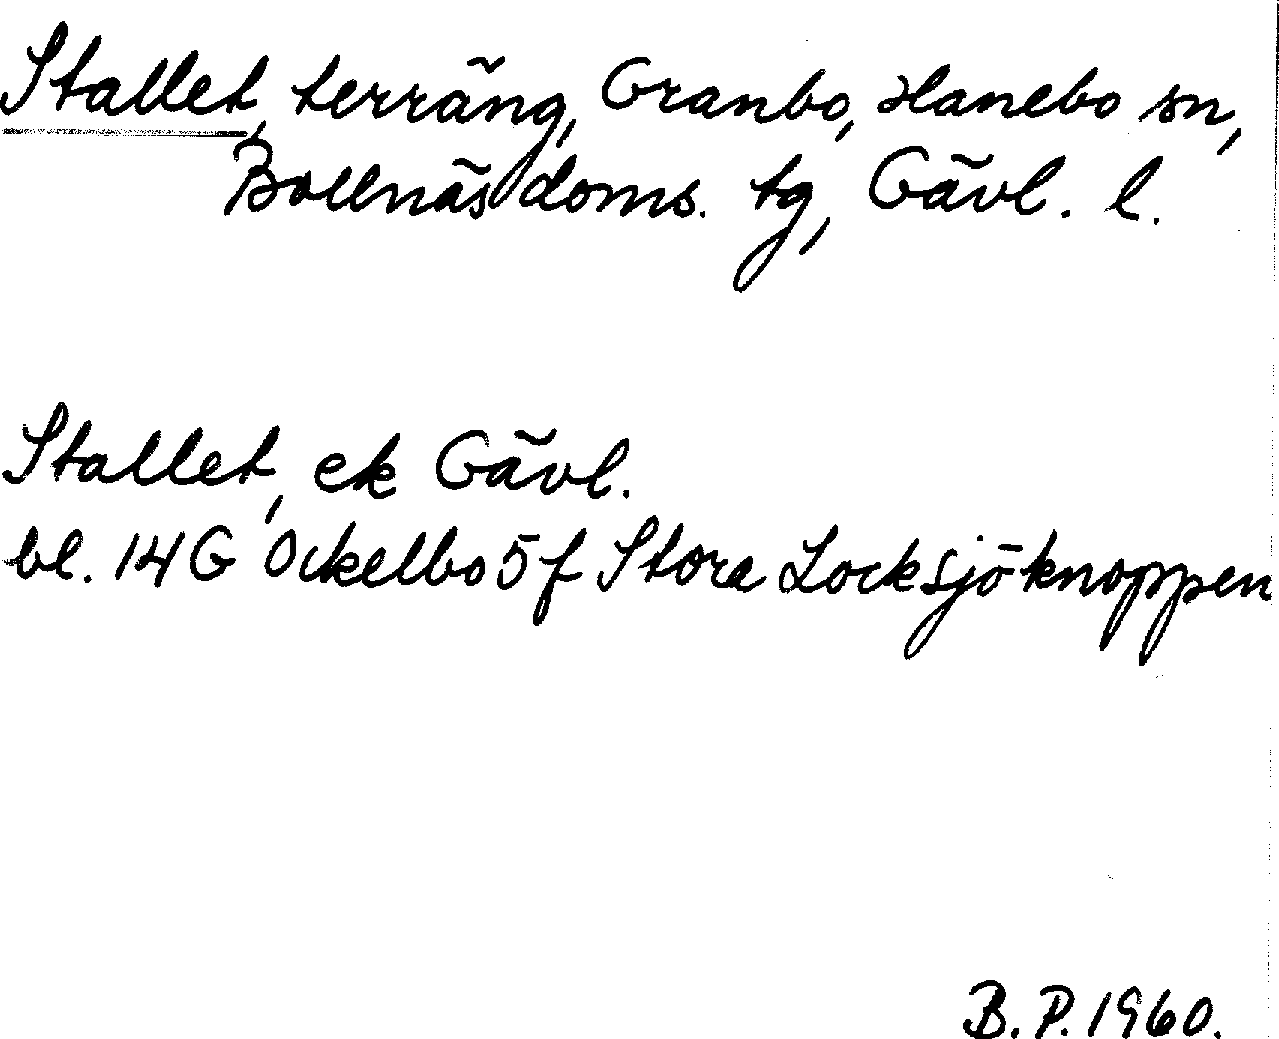 Stallet, terräng, Granbo, Hanebo sn,
Bollnäs doms. tg, Gävl. l.
Stallet, ek Gävl.
bl. 14G Ockelbo 5f Stora Locksjöknoppen
B. P. 1960.